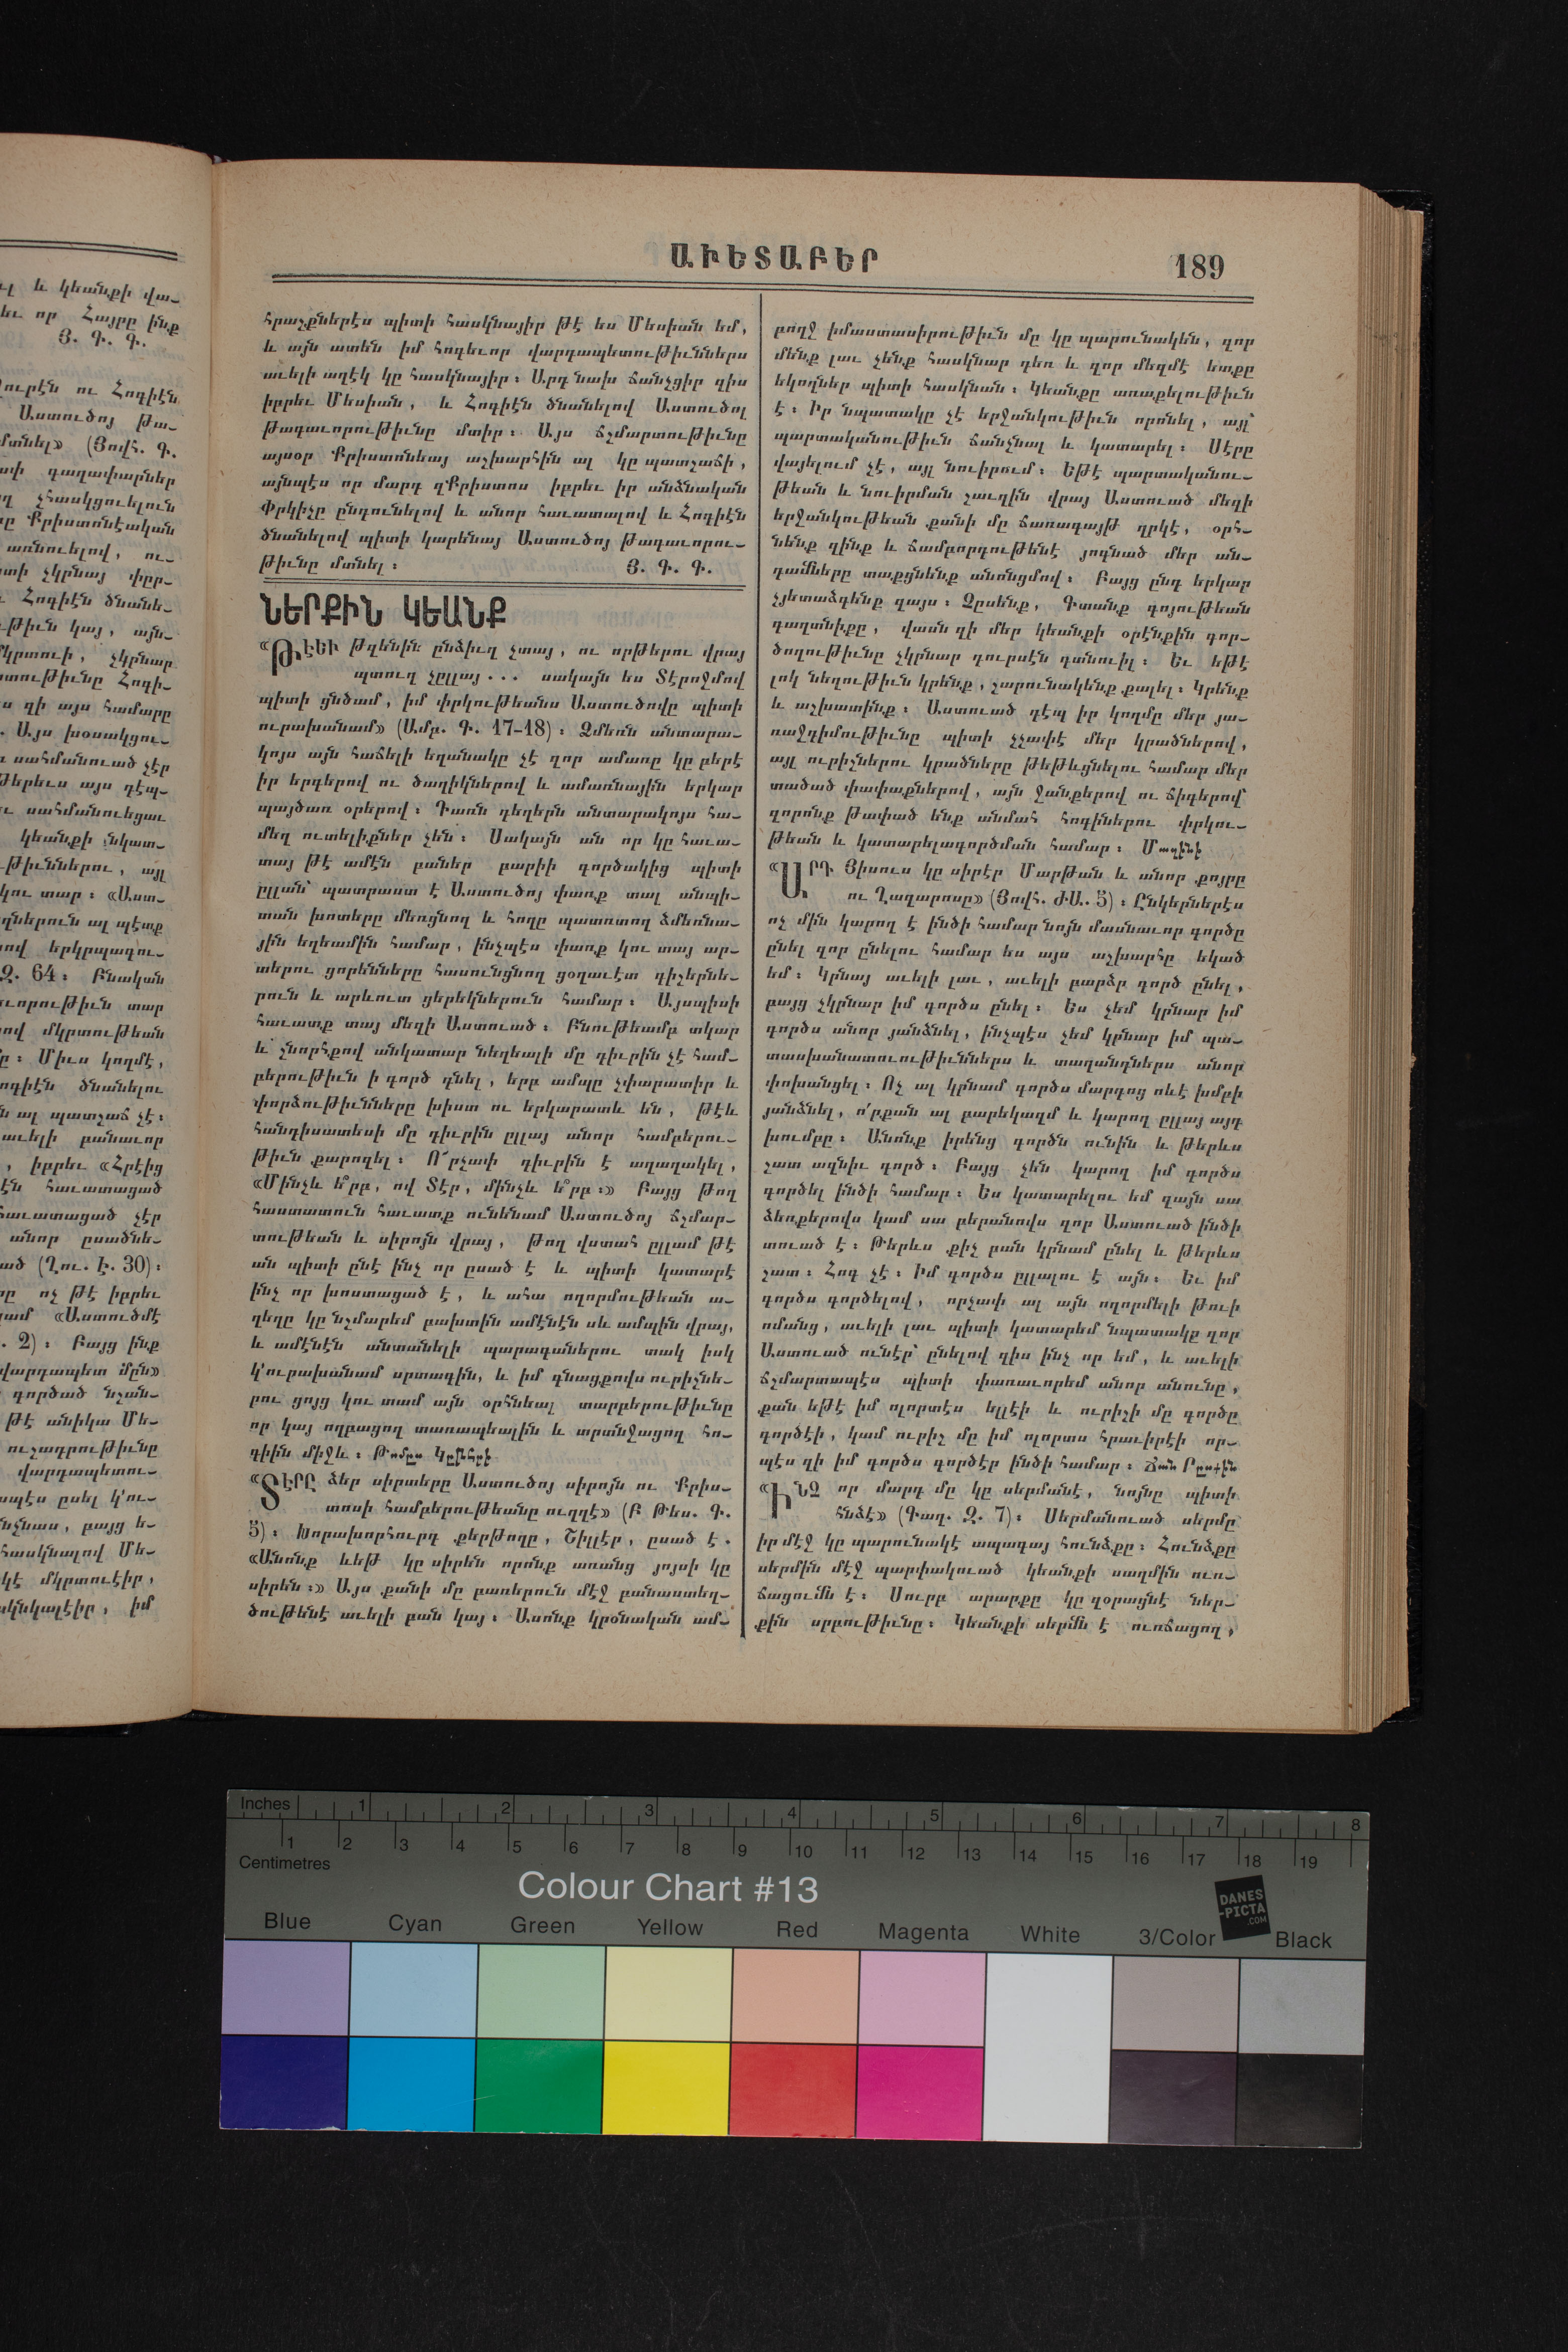 ԱՒԵՏԱԲԵՐ
189
հրաշքներէս պիտի հասկնայիր թէ ես Մեսիան եմ,
և այն ատեն իմ հոգեւոր վարդապետութիւններս
աւելի աղէկ կը հասկնայիր։ Արդ նախ ճանչցիր զիս
իբրեւ Մեսիան, և Հոգիէն ծնանելով Աստուծոյ
թագաւորութիւնը մտիր։ Այս ճշմարտութիւնը
այսօր Քրիստոնեայ աշխարհին ալ կը պատշաճի,
այնպէս որ մարդ զՔրիստոս իբրեւ իր անձնական
Փրկիչը ընդունելով և անոր հաւատալով և Հոգիէն
ծնանելով պիտի կարենայ Աստուծոյ թագաւորու–
թիւնը մտնել։ Յ. Գ. Գ.
ՆԵՐՔԻՆ ԿԵԱՆՔ
«ԹԷԵՒ թզենին ընձիւղ չտայ, ու որթերու վրայ
պտուղ չըլլայ... սակայն ես Տէրոջմով
պիտի ցնծամ, իմ փրկութեանս Աստուծովը պիտի
ուրախանամ» (Ամբ. Գ. 17–18)։ Ձմեռն անտարա–
կոյս այն հաճելի եղանակը չէ զոր ամառը կը բերէ
իր երգերով ու ծաղիկներով և ամառնային երկար
պայծառ օրերով։ Դառն դեղերն անտարակոյս հա–
մեղ ուտելիքներ չեն։ Սակայն ան որ կը հաւա–
տայ թէ ամէն բաներ բարիի գործակից պիտի
ըլլան՝ պատրաստ է Աստուծոյ փառք տալ անպի–
տան խոտերը մեռցնող և հողը պատռտող ձմեռնա–
յին եղեամին համար, ինչպէս փառք կու տայ ար–
տերու ցորենները հասունցնող ցօղաւէտ գիշերնե–
րուն և արևոտ ցերեկներուն համար։ Այսպիսի
հաւատք տայ մեզի Աստուած։ Բնութեամբ տկար
և շնորհքով անկատար նեղեալի մը դիւրին չէ համ–
բերութիւն ի գործ դնել, երբ ամպը չփարատիր և
փորձութիւնները խիստ ու երկարատև են, թէև
հանդիսատեսի մը դիւրին ըլլայ անոր համբերու–
թիւն քարոզել։ Ո՜րչափ դիւրին է աղաղակել,
«Մինչև ե՞րբ, ով Տէր, մինչև ե՞րբ։» Բայց թող
հաստատուն հաւատք ունենամ Աստուծոյ ճշմար–
տութեան և սիրոյն վրայ, թող վստահ ըլլամ թէ
ան պիտի ընէ ինչ որ ըսած է և պիտի կատարէ
ինչ որ խոստացած է, և ահա ողորմութեան ա–
ղեղը կը նշմարեմ բախտին ամէնէն սև ամպին վրայ,
և ամէնէն անտանելի պարագաներու տակ իսկ
կ՚ուրախանամ սրտագին, և իմ գնացքովս ուրիշնե–
րու ցոյց կու տամ այն օրհնեալ տարբերութիւնը
որ կայ ողբացող տառապեալին և տրտնջացող հո–
գիին միջև։
«ՏԷՐԸ ձեր սիրտերը Աստուծոյ սիրոյն ու Քրիս–
տոսի համբերութեանը ուղղէ» (Բ Թես. Գ.
5)։ Խորախորհուրդ քերթողը, Շիլլէր, ըսած է.
«Անոնք ևեթ կը սիրեն որոնք առանց յոյսի կը
սիրեն։» Այս քանի մը բառերուն մէջ բանաստեղ–
ծութենէ աւելի բան կայ։ Ասոնք կրօնական ամ–
բողջ իմաստասիրութիւն մը կը պարունակեն, զոր
մենք լաւ չենք հասկնար դեռ և զոր մեզմէ ետքը
եկողներ պիտի հասկնան։ Կեանքը առաքելութիւն
է։ Իր նպատակը չէ երջանկութիւն որոնել, այլ՝
պարտականութիւն ճանչնալ և կատարել։ Սէրը
վայելում չէ, այլ նուիրում։ Եթէ պարտականու–
թեան և նուիրման շաւղին վրայ Աստուած մեզի
երջանկութեան քանի մը ճառագայթ ղրկէ, օրհ–
նենք զինք և ճամբորդութենէ յոգնած մեր ան–
դամները տաքցնենք անոնցմով։ Բայց ընդ երկար
չյետաձգենք զայս։ Չըսենք, Գտանք գոյութեան
գաղտնիքը, վասն զի մեր կեանքի օրէնքին գոր–
ծողութիւնը չկրնար դուրսէն գտնուիլ։ Եւ եթէ
լոկ նեղութիւն կրենք, շարունակենք քալել։ Կրենք
և աշխատինք։ Աստուած դէպ իր կողմը մեր յա–
ռաջդիմութիւնը պիտի չչափէ մեր կրածներով,
այլ ուրիշներու կրածները թեթևցնելու համար մեր
տածած փափաքներով, այն ջանքերով ու ճիգերով՝
զորոնք թափած ենք անմահ հոգիներու փրկու–
թեան և կատարելագործման համար։ Մաղինի
«ԱՐԴ Յիսուս կը սիրէր Մարթան և անոր քոյրը
ու Ղազարոսը» (Յովհ. ԺԱ. 5)։ Ընկերներէս
ոչ մին կարող է ինծի համար նոյն մասնաւոր գործը
ընել զոր ընելու համար ես այս աշխարհը եկած
եմ։ Կրնայ աւելի լաւ, աւելի բարձր գործ ընել,
բայց չկրնար իմ գործս ընել։ Ես չեմ կրնար իմ
գործս անոր յանձնել, ինչպէս չեմ կրնար իմ պա–
տասխանատուութիւններս և տաղանդներս անոր
փոխանցել։ Ոչ ալ կրնամ գործս մարդոց ոևէ խմբի
յանձնել, ո՛րքան ալ բարեկազմ և կարող ըլլայ այդ
խումբը։ Անոնք իրենց գործն ունին և թերևս
շատ ազնիւ գործ։ Բայց չեն կարող իմ գործս
գործել ինծի համար։ Ես կատարելու եմ զայն սա
ձեռքերովս կամ սա բերանովս զոր Աստուած ինծի
տուած է։ Թերևս քիչ բան կրնամ ընել և թերևս
շատ։ Հոգ չէ։ Իմ գործս ըլլալու է այն։ Եւ իմ
գործս գործելով, որչափ ալ այն ողորմելի թուի
ոմանց, աւելի լաւ պիտի կատարեմ նպատակը զոր
Աստուած ունէր՝ ընելով զիս ինչ որ եմ, և աւելի
ճշմարտապէս պիտի փառաւորեմ անոր անունը,
քան եթէ իմ ոլորտէս ելլէի և ուրիշի մը գործը
գործէի, կամ ուրիշ մը իմ ոլորտս հրաւիրէի որ–
պէս զի իմ գործս գործէր ինծի համար։ Ճան Րըսքին
«ԻՆՉ որ մարդ մը կը սերմանէ, նոյնը պիտի
հնձէ» (Գաղ. Զ. 7)։ Սերմանուած սերմը
իր մէջ կը պարունակէ ապագայ հունձքը։ Հունձքը
սերմին մէջ պարփակուած կեանքի սաղմին ուռ–
ճացումն է։ Սուրբ արարքը կը զօրացնէ ներ–
քին սրբութիւնը։ Կեանքի սերմն է ուռճացող,
Inches 1 2 3 4 5 6 7 8
1 2 3 4 5 6 7 8 9 10 11 12 13 14 15 16 17 18 19
Centimetres
Colour Chart #13
DANES
-PICTA
.COM
Blue Cyan Green Yellow Red Magenta White 3/Color Black